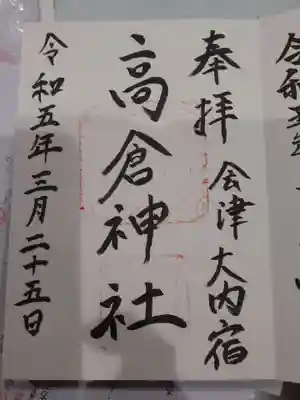 奉拝
会津大内宿
高倉神社
令和五年三月二十五日